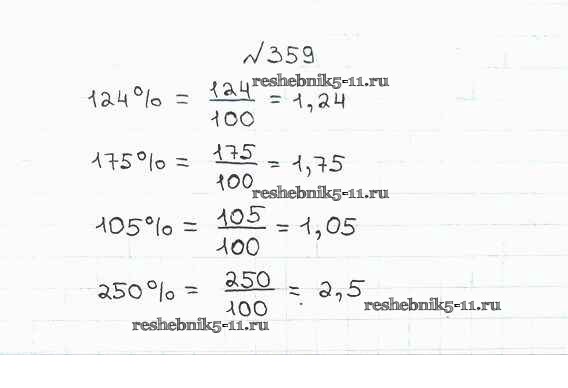 №359
reshebnik5-11.ru
124% = 124/100 = 1,24
175% = 175/100 = 1,75
reshebnik5-11.ru
105% = 105/100 = 1,05
250% = 250/100 = 2,5
reshebnik5-11.ru
reshebnik5-11.ru